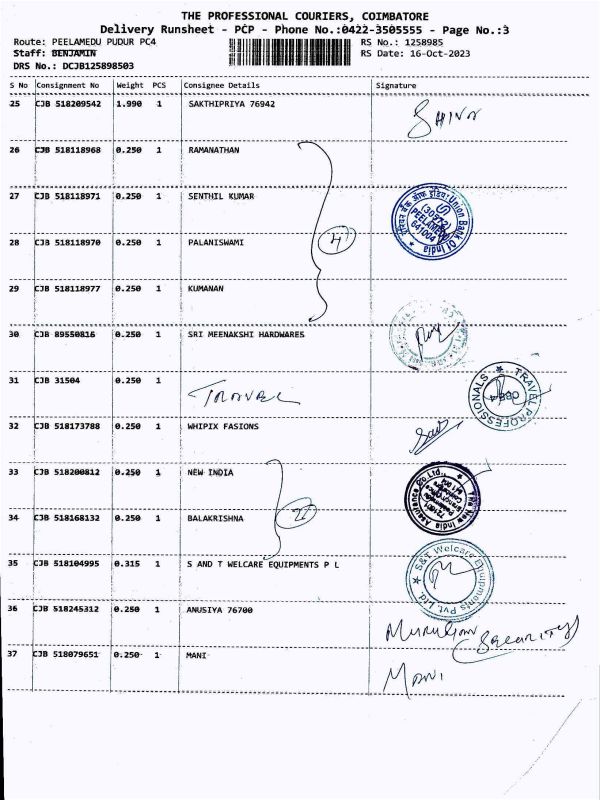 THE PROFESSIONAL COURIERS, COIMBATORE
Delivery Runsheet - PCP - Phone No.:0422-3505555 - Page No.:3
Route: PEELAMEDU PUDUR PC4 RS No.: 1258985
Staff: BENJAMIN RS Date: 16-Oct-2023
DRS No.: DCJB125898503
S No Consignment No Weight PCS Consignee Details Signature
25 CJB 518209542 1.990 1 SAKTHIPRIYA 76942
26 CJB 518118968 0.250 1 RAMANATHAN
27 CJB 518118971 0.250 1 SENTHIL KUMAR
Union Bank Of India
(30272)
PEELAMEDU
641004
28 CJB 518118970 0.250 1 PALANISWAMI 4
29 CJB 518118977 0.250 1 KUMANAN
30 CJB 89550816 0.250 1 SRI MEENAKSHI HARDWARES
31 CJB 31504 0.250 1 TRAVEL
TRAVEL PROFESSIONALS
CBE-4
32 CJB 518173788 0.250 1 WHIPIX FASIONS
33 CJB 518200812 0.250 1 NEW INDIA
The New India Assurance Co Ltd.,
34 CJB 518168132 0.250 1 BALAKRISHNA
35 CJB 518104995 0.315 1 S AND T WELCARE EQUIPMENTS P L
S&T Welcare Equipments Pvt. Ltd.
36 CJB 518245312 0.250 1 ANUSIYA 76700 Murugan Security
37 CJB 518079651 0.250 1 MANI Mani